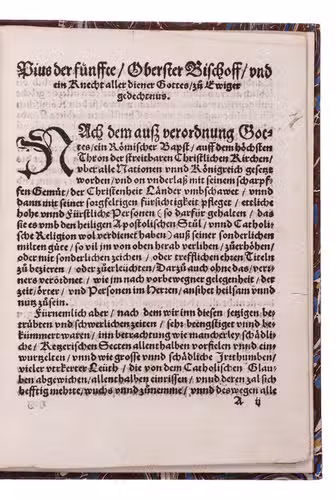 Pius der fünffte / Oberster Bischoff / vnd
ein Knecht aller diener Gottes / zů Ewiger
gedechtnus.
NAch dem auß verordnung Got-
tes / ein Römischer Bapst / auff dem höchsten
Thron der streitbaren Christlichen Kirchen /
vber alle Nationen vnnd Königreich gesetzt
worden / vnd on vnderlaß mit seinem scharpf-
fen Gemüt / der Christenheit Länder vmbschawet / vnnd
dann mit seiner sorgfeltigen fürsichtigkeit pfleget / ettliche
hohe vnnd Fürstliche Personen (so darfür gehalten / das
sie es vmb den heiligen Apostolischen Stůl / vnnd Catholi-
sche Religion wol verdienet haben) auß sonder sonderlichen
milten güte / so vil jm von oben herab verlihen / zůerhöhen /
oder mit sonderlichen zeichen / oder trefflichen ehren Titeln
zů bezieren / oder zůerleüchten / Darzů auch ohne das / ver-
mers verörsnet / wie jm nach vorbewegner gelegenheit / der
zeit / örter / vnd Personen im Herren / ansihet heilsam vnnd
nutz zůsein.
Fürnemlich aber / nach dem wir inn diesen jetzigen be-
trübten vnd schwerlichen zeiten / sehr beengstiget vnnd be-
kümmert waren / inn betrachtung wie mancherley schädli-
che / Ketzerischen Secten allenthalben vorfielen vnnd ein-
wurzelten / vnnd wie grosse vnnd schädliche Irrthumben /
vieler verkerter Leüth / die von dem Catholischen Glau-
ben abgewichen / allenthalben einrissen / vnnd deren zal sich
hefftig mehrte / wuchs vnnd zůnemme / vnnd deswegen alle
A ij